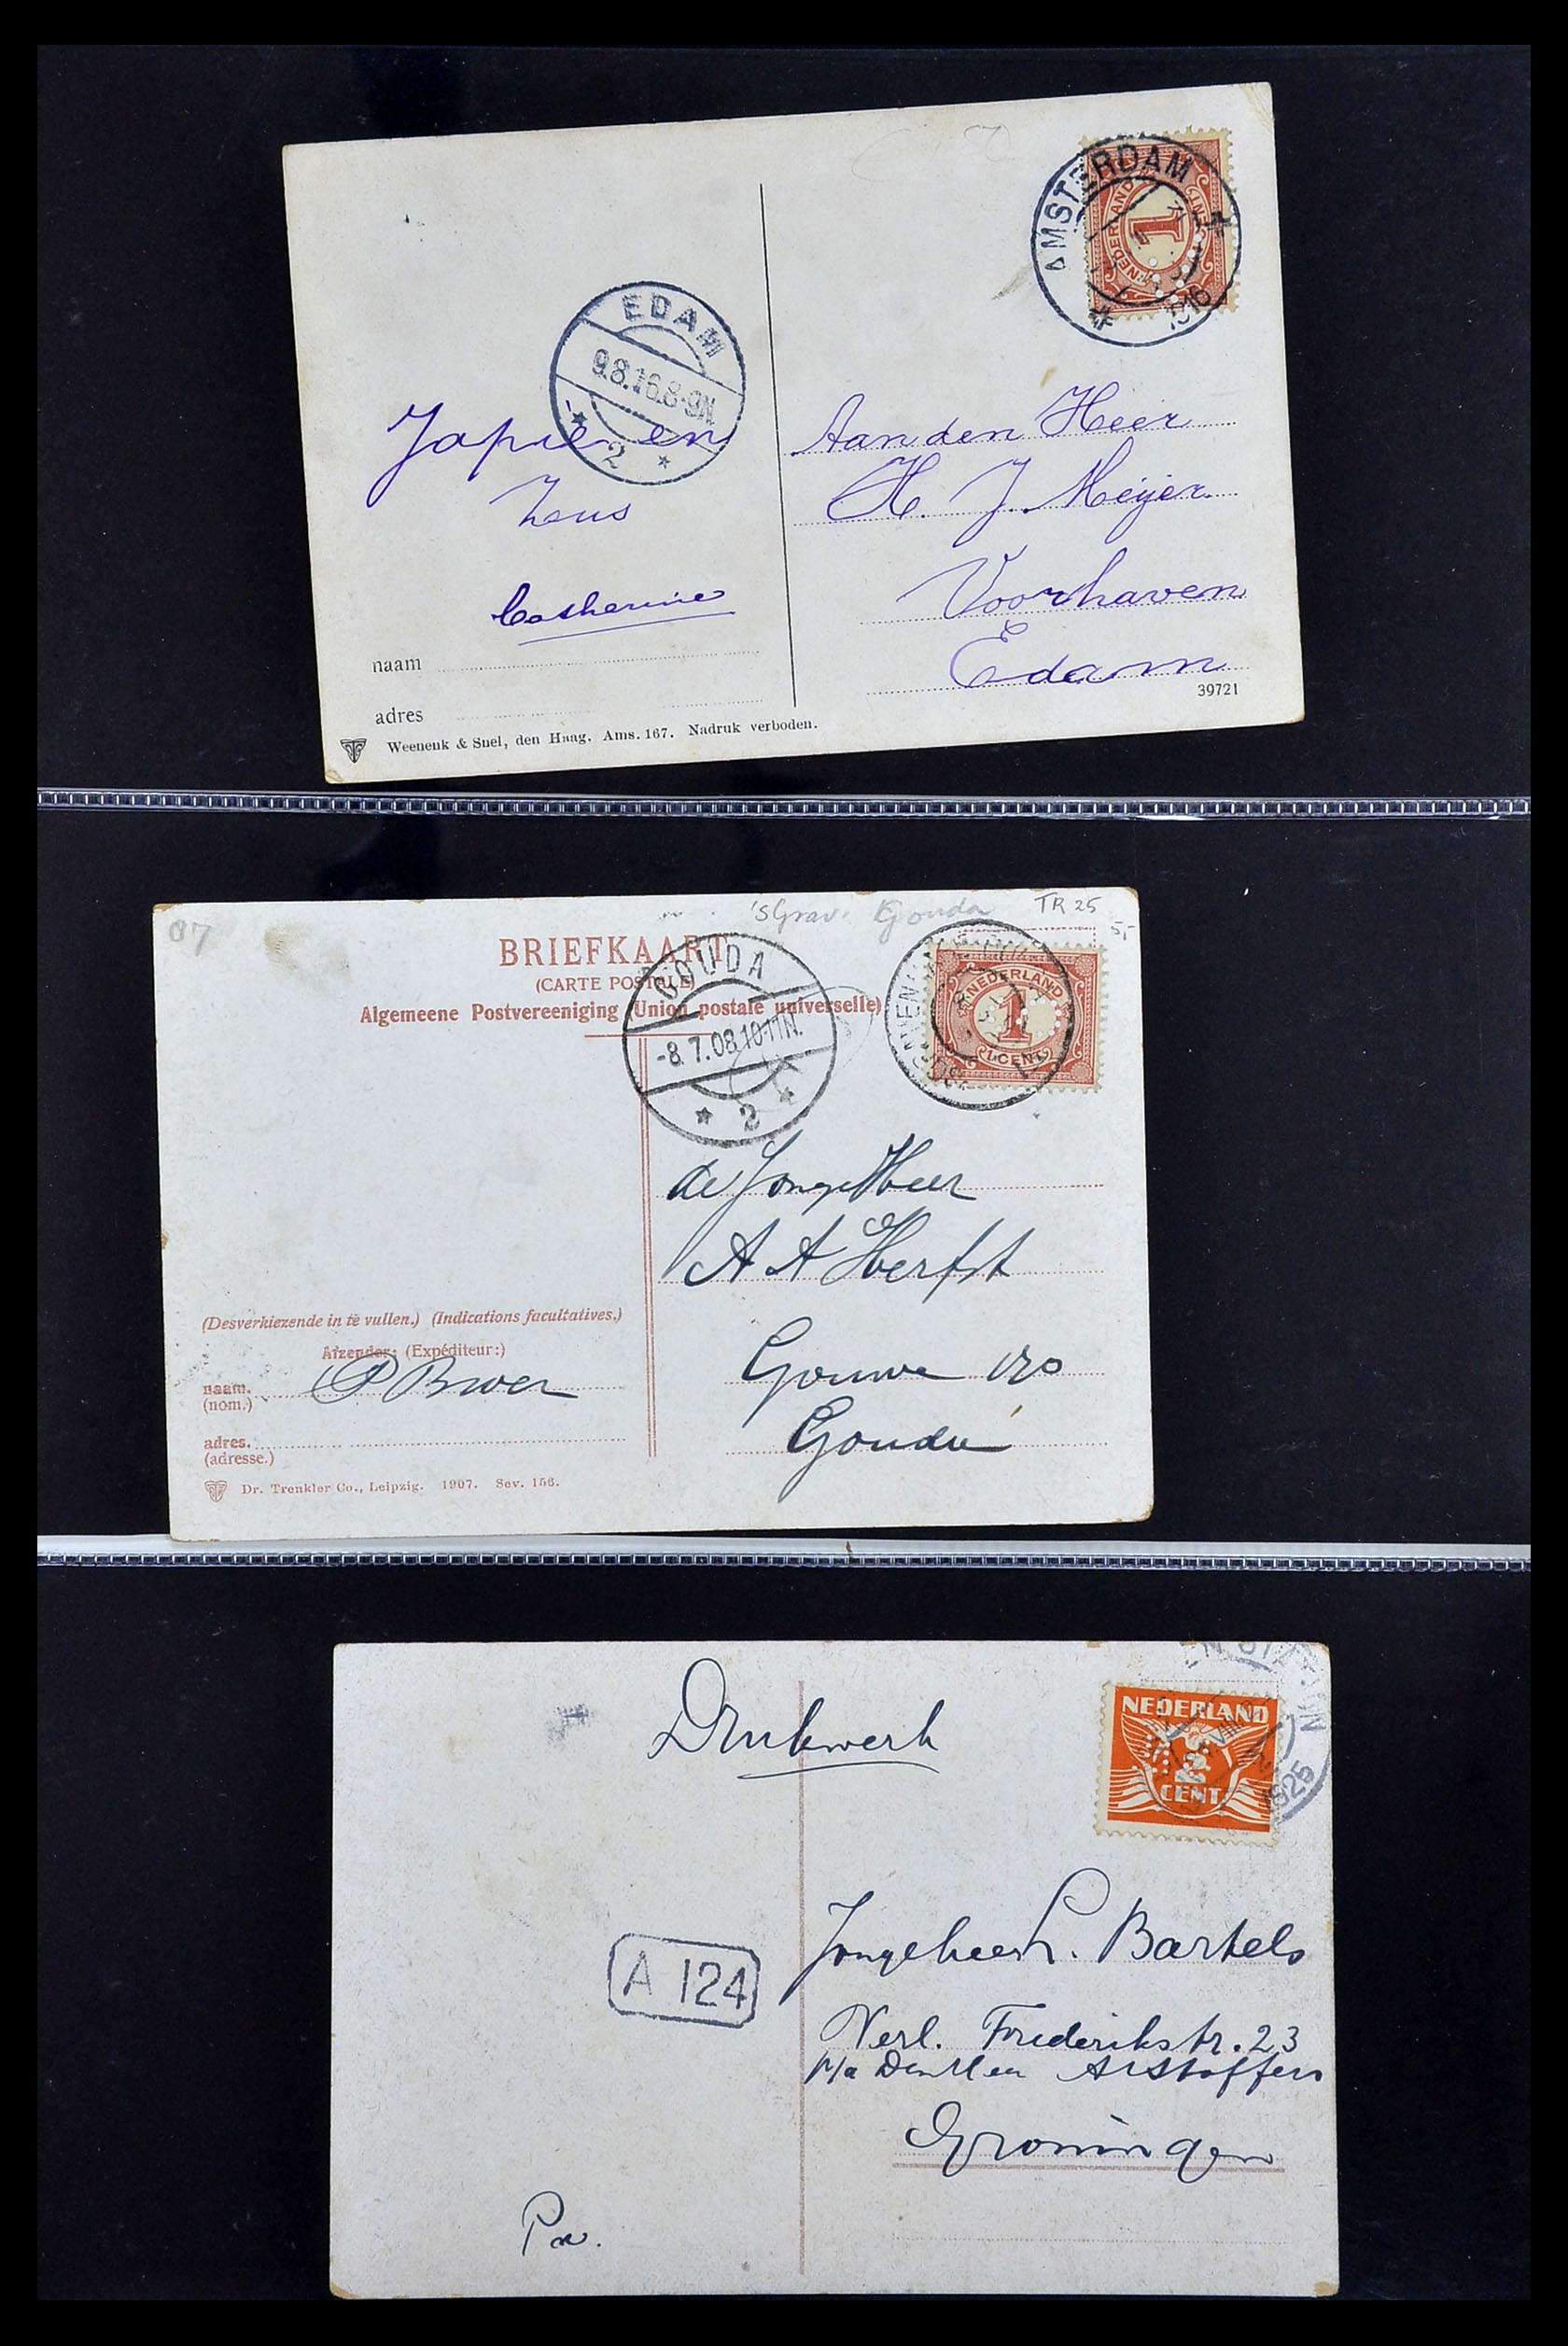 AMSTERDAM
1916
NEDERLAND
1
EDAM
9.8.16.8-9N.
2
Japie en
Zeus
Catherine
naam
adres
Weenenk & Snel, den Haag. Ams. 167. Nadruk verboden.
Aan den Heer
H. J. Meijer
Voorhaven
Edam
39721
07
'sGrav. Gouda
TR 25
5,-
BRIEFKAART
(CARTE POSTALE)
Algemeene Postvereeniging (Union postale universelle)
GOUDA
-8.7.08.10-11N.
2
NEDERLAND
1
1 CENT
de Jonge Heer
A A Herfst
Gouwe 170
Gouda
(Desverkiezende in te vullen.) (Indications facultatives.)
Afzender: (Expéditeur:)
naam. P Brver
(nom.)
adres.
(adresse.)
Dr. Trenkler Co., Leipzig. 1907. Sev. 156.
Drukwerk
NEDERLAND
CENT
1925
A 124
Jongeheer . Bartels
Verl. Frederikstr. 23
p/a
Groningen